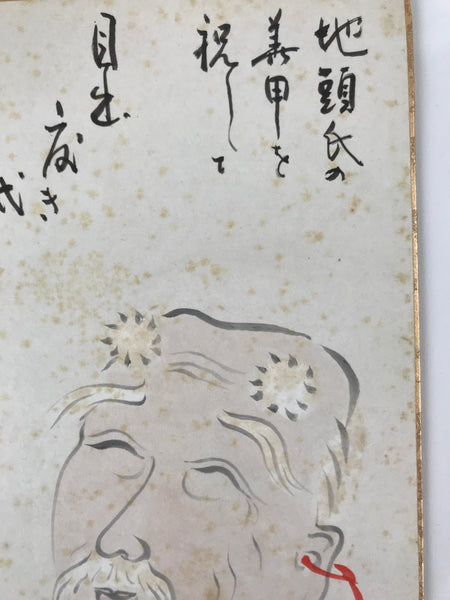 地頭氏の
華甲を
祝して
目出
度き